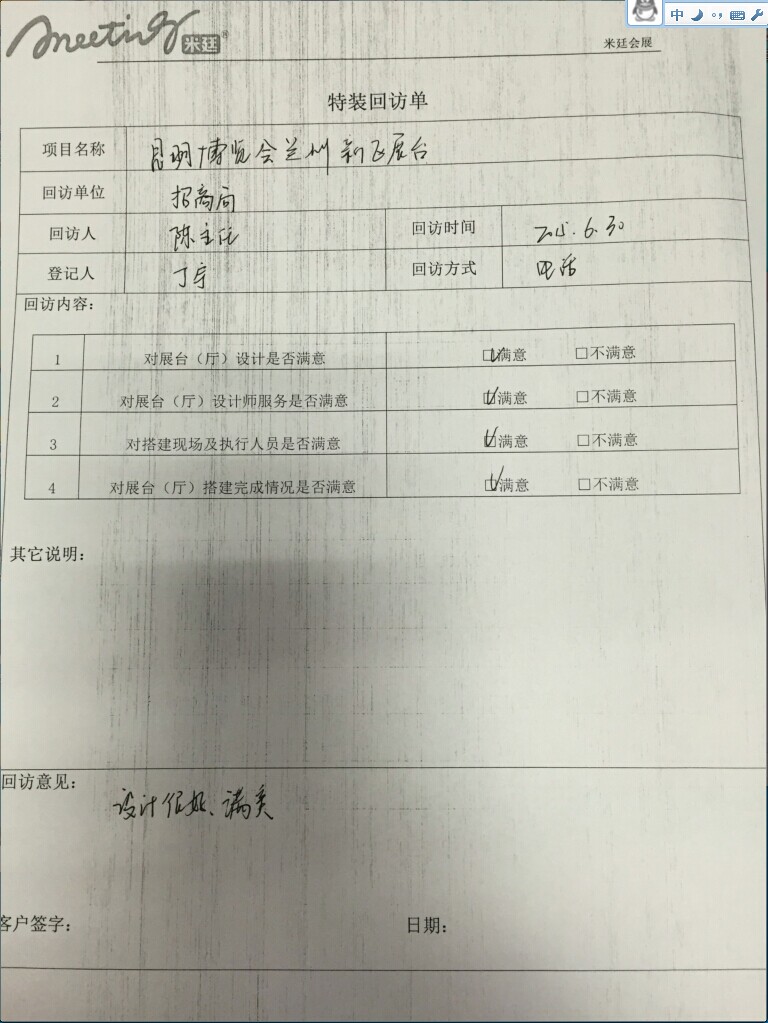 meeting 米廷®
中
米廷会展
特装回访单
项目名称 昆明博览会兰州新区展台
回访单位 招商局
回访人 陈主任 回访时间 2015.6.30
登记人 丁宇 回访方式 电话
回访内容：
1 对展台（厅）设计是否满意 ☑满意 □不满意
2 对展台（厅）设计师服务是否满意 ☑满意 □不满意
3 对搭建现场及执行人员是否满意 ☑满意 □不满意
4 对展台（厅）搭建完成情况是否满意 ☑满意 □不满意
其它说明：
回访意见：
设计很好、满意
客户签字： 日期：